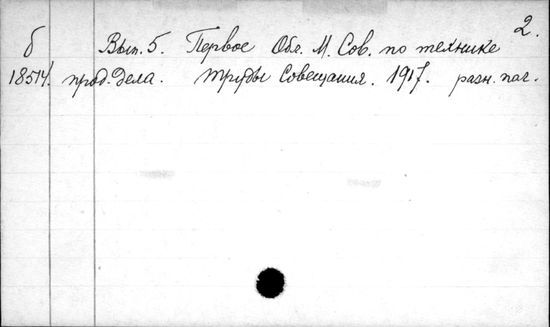 2.
б Вып. 5. Первое Обл. М. Сов. по технике
18514. прод. дела. Труды Совещания. 1917. разн. паг.